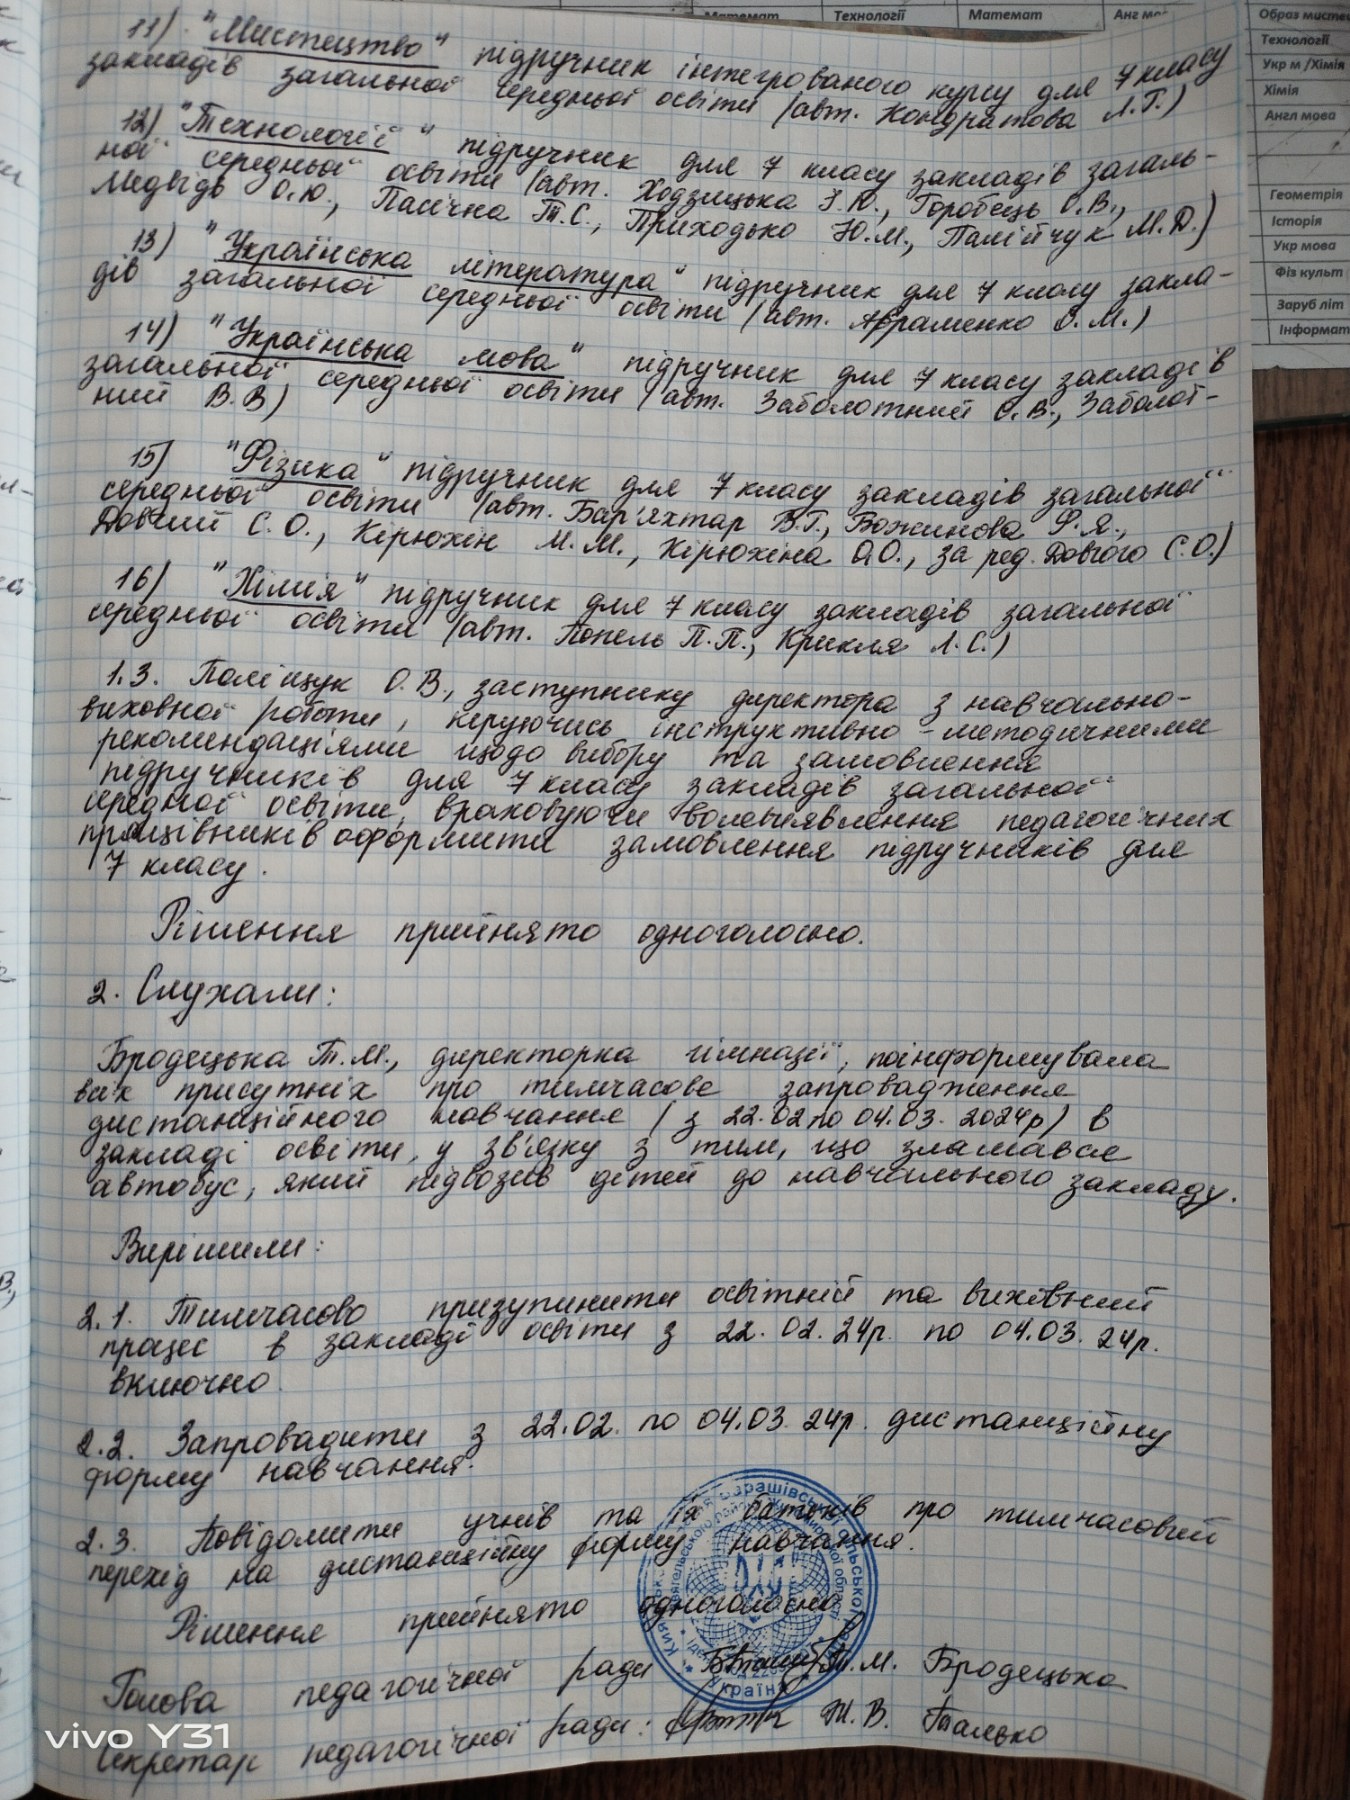 Математ
Технології
Математ
Анг мо
Образ мисте
Технології
Укр м /Хімія
Хімія
Англ мова
Геометрія
Історія
Укр мова
Фіз культ
Заруб літ
Інформат
11) "Мистецтво" підручник інтегрованого курсу для 7 класу
закладів загальної середньої освіти (авт. Кондратова Л.Г.)
12) "Технології" підручник для 7 класу закладів загаль-
ної середньої освіти (авт. Ходзицька І.Ю., Горобець О.В.,
Медвідь О.Ю., Пасічна Т.С., Приходько Ю.М., Палійчук М.Д.)
13) "Українська література" підручник для 7 класу закла-
дів загальної середньої освіти (авт. Авраменко О.М.)
14) "Українська мова" підручник для 7 класу закладів
загальної середньої освіти (авт. Заболотний О.В., Заболот-
ний В.В)
15) "Фізика" підручник для 7 класу закладів загальної
середньої освіти (авт. Бар'яхтар В.Г., Божинова Ф.Я.,
Довгий С.О., Кірюхін М.М., Кірюхіна О.О., за ред. Довгого С.О.)
16) "Хімія" підручник для 7 класу закладів загальної
середньої освіти (авт. Попель П.П., Крикля Л.С.)
1.3. Поліщук О.В., заступнику директора з навчально-
виховної роботи, керуючись інструктивно-методичними
рекомендаціями щодо вибору та замовлення
підручників для 7 класу закладів загальної
середньої освіти, враховуючи волевиявлення педагогічних
працівників оформити замовлення підручників для
7 класу.
Рішення прийнято одноголосно.
2. Слухали:
Бродецька Т.М., директорка гімназії, поінформувала
всіх присутніх про тимчасове запровадження
дистанційного навчання (з 22.02 по 04.03. 2024р) в
закладі освіти, у зв'язку з тим, що зламався
автобус, який підвозив дітей до навчального закладу.
Вирішили:
2.1. Тимчасово призупинити освітній та виховний
процес в закладі освіти з 22.02.24р. по 04.03.24р.
включно.
2.2. Запровадити з 22.02. по 04.03.24р. дистанційну
форму навчання.
2.3. Повідомити учнів та їх батьків про тимчасовий
перехід на дистанційну форму навчання.
Рішення прийнято одноголосно.
Голова педагогічної ради Т.М. Бродецька
Секретар педагогічної ради: Т.В. Талько
Україна
vivo Y31